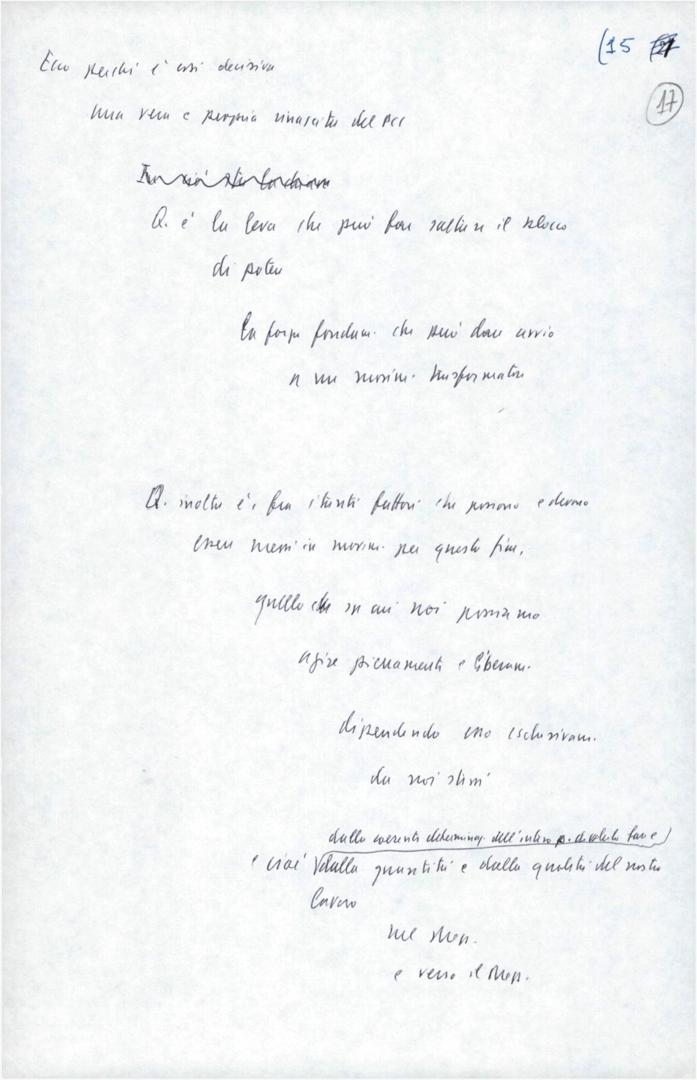 (15
17
Ecco perché è così decisiva
una vera e propria rinascita del PCI
Q. è la leva che può fare saltare il blocco
di potere
la forza fondam. che può dare avvio
a un movim. trasformatore
Q. inoltre è, fra i tanti fattori che possono e devono
essere messi in movim. per questo fine,
quello su cui noi possiamo
agire pienamente e liberam.
dipendendo esso esclusivam.
da noi stessi
dalla coerente determinaz. dell'intero p. di volerlo fare e
e cioè dalla quantità e dalla qualità del nostro
lavoro
nel Mezz.
e verso il Mezz.